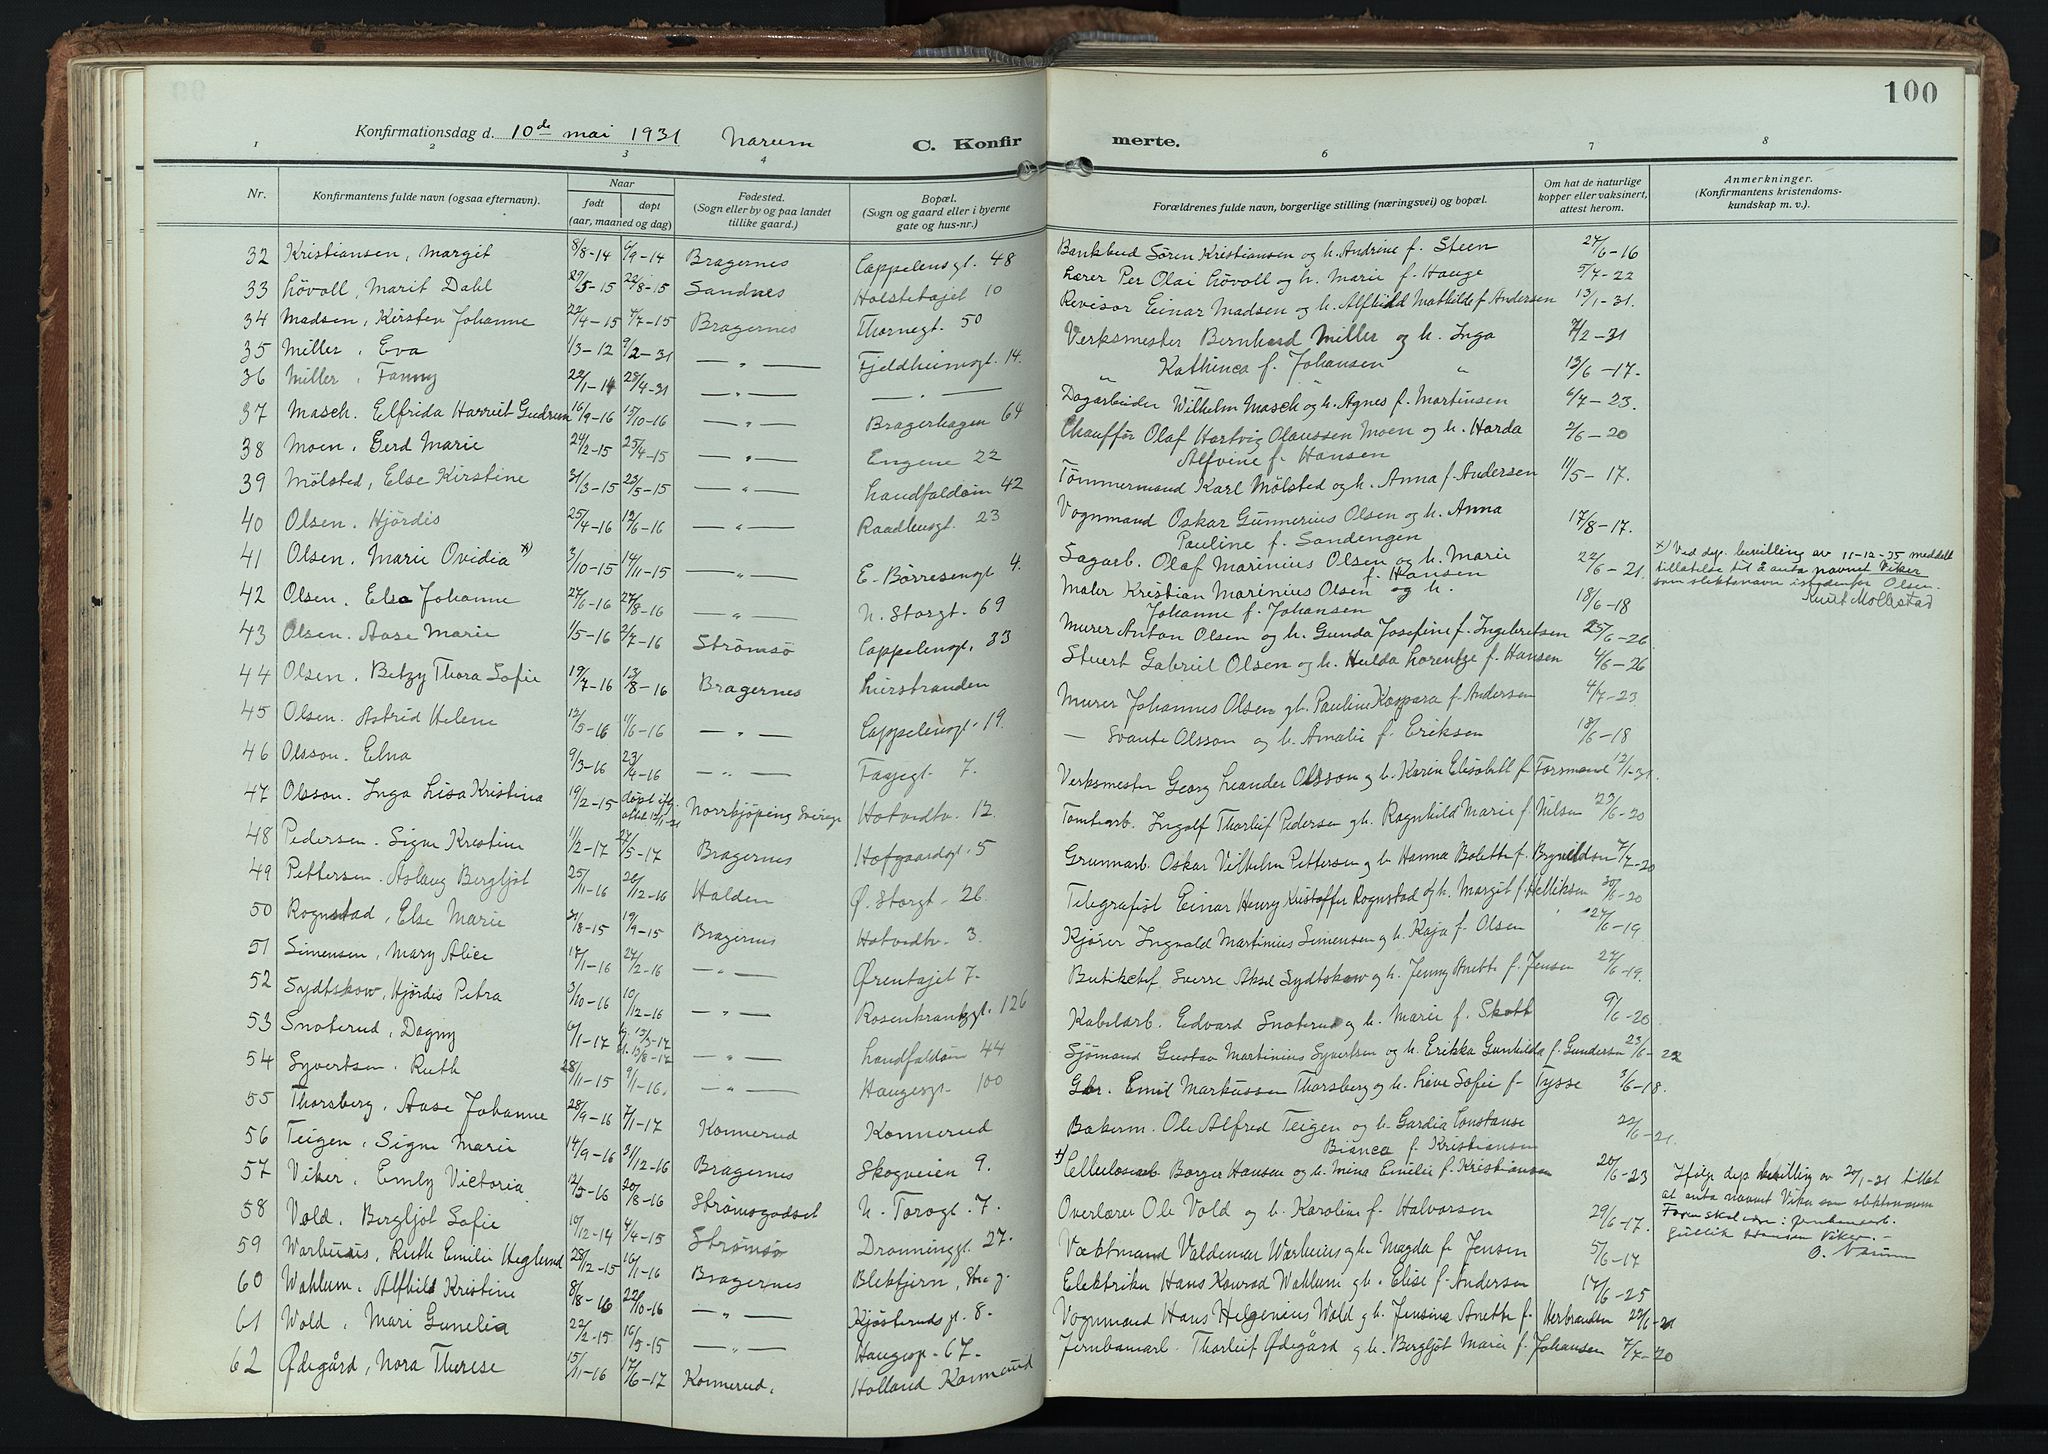 100
Konfirmationsdag d. 10de mai 1931 Narum C. Konfirmerte.
1 2 3 4 6 7 8
Nr. Konfirmantens fulde navn (ogsaa efternavn). Naar født døpt (aar, maaned og dag) Fødested. (Sogn eller by og paa landet tillike gaard.) Bopæl. (Sogn og gaard eller i byerne gate og hus-nr.) Forældrenes fulde navn, borgerlige stilling (næringsvei) og bopæl. Om hat de naturlige kopper eller vaksinert, attest herom. Anmerkninger. (Konfirmantens kristendomskundskap m. v.)
32 Kristiansen, Margit 8/8-14 6/9-14 Bragernes Cappelensgt. 48 Bankbud Søren Kristiansen og h. Andrine f. Steen 27/6-16
33 Løvoll, Marit Dahl 29/5-15 22/8-15 Sandnes Holstetajet 10 Lærer Per Olai Løvoll og h. Marie f. Hauge 5/7-22
34 Madsen, Kirsten Johanne 22/4-15 4/7-15 Bragernes Thornegt. 50 Revisor Einar Madsen og h. Alfhild Mathilde f. Andersen 13/1-31.
35 Miller, Eva 1/3-12 9/2-31 — " — Fjeldheimsgt. 14. Verksmester Bernhard Miller og h. Inga 7/2-31
36 Miller, Fanny 22/1-14 28/4-31 — " — — " — Kathinca f. Johansen 13/6-17.
37 Masch. Elfrida Harriet Gudrun 16/9-16 15/10-16 — " — Bragerhagen 64 Dagarbeider Wilhelm Masch og h. Agnes f. Martinsen 6/7-23.
38 Moen. Gerd Marie 24/2-15 25/4-15 — " — Engene 22 Chauffør Olaf Hartvig Olaussen Moen og h. Harda Alfvine f. Hansen 2/6-20
39 Mølsted, Else Kirstine 31/3-15 23/5-15 — " — Landfaldøin 42 Tømmermand Karl Mølsted og h. Anna f. Andersen 11/5-17.
40 Olsen. Hjördis 25/4-16 12/6-16 — " — Raadhusgt. 23 Vognmand Oskar Gunnerius Olsen og h. Anna Pauline f. Sandengen 17/8-17.
41 Olsen. Marie Ovidia x) 3/10-15 14/11-15 — " — E-Børresensgt 4. Sagarb. Olaf Marinius Olsen og h. Marie f. Hansen 22/6-21. x) Ved dep. bevilling av 11-12-35 meddelt tillatelse til å anta navnet Viker som slektsnavn istedenfor Olsen. Knut Mollestad
42 Olsen. Else Johanne 27/6-16 27/8-16 — " — N. Storgt. 69 Maler Kristian Marinius Olsen og h. Johanne f. Johansen 18/6-18
43 Olsen. Aase Marie 1/5-16 2/7-16 Strømsø Cappelensgt. 33 Murer Anton Olsen og h. Gunda Josefine f. Ingebretsen 25/6-26
44 Olsen. Betzy Thora Sofie 19/7-16 13/8-16 Bragernes Lierstranden Stuert Gabriel Olsen og h. Hulda Lorentze f. Hansen 4/6-26
45 Olsen. Astrid Helene 12/5-16 11/6-16 — " — Cappelensgt. 19. Murer Johannes Olsen og h. Pauline Kaspara f. Andersen 4/7-23
46 Olsson. Elna 9/3-16 23/4-16 — " — Fayegt. 7. — Svante Olsson og h. Amalie f. Eriksen 18/6-18
47 Olsson. Inga Lisa Kristina 19/2-15 døpt ifg. attest 12/1-21 Norrkjøping Sverige Hotvedtv. 12. Verksmester Georg Leander Olsson og h. Karin Elisabeth f. Forsmand 12/1-31.
48 Pedersen. Signe Kristine 11/2-17 27/5-17 Bragernes Hofgaardsgt. 5 Tomtearb. Ingolf Thorleif Pedersen og h. Ragnhild Marie f. Nilsen 23/6-20
49 Pettersen. Aslaug Bergljot 25/11-16 26/12-16 Halden Ø. Storgt. 26. Grunnarb. Oskar Vilhelm Pettersen og h. Hanna Bolette f. Brynildsen 7/7-20
50 Rognstad, Else Marie 21/8-15 19/9-15 Bragernes Hotvedtv. 3. Telegrafist Einar Henry Kristoffer Rognstad og h. Margit f. Helliksen 30/6-20
51 Simensen, Mary Alice 17/1-16 24/2-16 — " — Ørentajet 7- Kjører Ingvald Martinius Simensen og h. Kaja f. Olsen 27/6-19
52 Sydtskow, Hjördis Petra 3/10-16 10/12-16 — " — Rosenkrantzgt. 126 Butikchef Sverre Aksel Sydtskow og h. Jenny Anette f. Jensen 27/6-19.
53 Snoterud, Dagny 6/1-17 13/5-17 13/8-17 — " — Landfaldøin 44 Kabelarb. Edvard Snoterud og h. Marie f. Skøtt 9/6-20
54 Syvertsen. Ruth 28/11-15 9/1-16. — " — Haugesgt. 100 Sjømand Gustav Martinius Syvertsen og h. Erikka Gunhilda f. Gundersen 23/6-22
55 Thorsberg, Aase Johanne 28/9-16 7/1-17 Konnerud Konnerud Gbr. Emil Markussen Thorsberg og h. Live Sofie f. Tysse 3/6-18.
56 Teigen, Signe Marie 14/9-16 31/12-16 Bragernes Skogveien 9. Bakerm. Ole Alfred Teigen og h. Gardia Constanse Bianca f. Kristiansen 22/6-21.
57 Viker, Emly Victoria 12/5-16 20/8-16 Strømsgodset N. Torggt. 7. +) Cellulosearb Borger Hansen og h. Mina Emilie f. Kristiansen 20/6-23 Ifølge dep bevilling av 20/1-21 tillat at anta navnet Viker som slektsnavn
58 Vold. Bergljot Sofie 10/12-14 4/4-15 Strømsø Dronninggt. 27. Overlærer Ole Vold og h. Karoline f. Halvorsen 29/6-17. Faren skal være: jernbanearb. Gullik Hansen Viker. - O. Narum
59 Warhuus, Ruth Emilie Heglund 28/12-15 16/1-16 Bragernes Blektjern, Brag. Vektmand Valdemar Warhuus og h. Magda f. Jensen 5/6-17
60 Wahlum, Alfhild Kristine 8/8-16 22/10-16 — " — Kjøsterudsgt. 8. Elektriker Hans Konrad Wahlum og h. Elise f. Andersen 17/6-25
61 Wold, Mari Gunelia 22/2-15 16/5-15 — " — Haugesgt. 67- Vognmand Hans Helgenius Wold og h. Jensine Anette f. Herbrandsen 22/6-21
62 Ødegård, Nora Therese 15/11-16 17/6-17 Konnerud. Holland Konnerud Jernbanearb. Thorleif Ødegård og h. Bergljot Marie f. Johansen 7/7-20